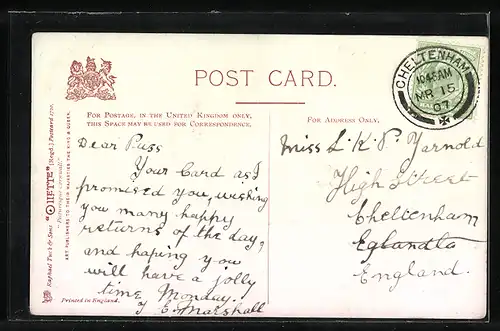 POST CARD.
FOR POSTAGE, IN THE UNITED KINGDOM ONLY,
THIS SPACE MAY BE USED FOR CORRESPONDENCE.
FOR ADDRESS ONLY.
CHELTENHAM
10.45AM
MR 15
07
Raphael Tuck & Sons' "OILETTE" [Regd.] Postcard
"Picturesque Cornwall"
ART PUBLISHERS TO THEIR MAJESTIES THE KING & QUEEN.
Dear Puss
Your Card as I
promised you, wishing
you many happy
returns of the day,
and hoping you
will have a jolly
time Monday.
E. Marshall
Printed in England.
Miss L. K. P. Yarnold
High Street
Cheltenham
England.